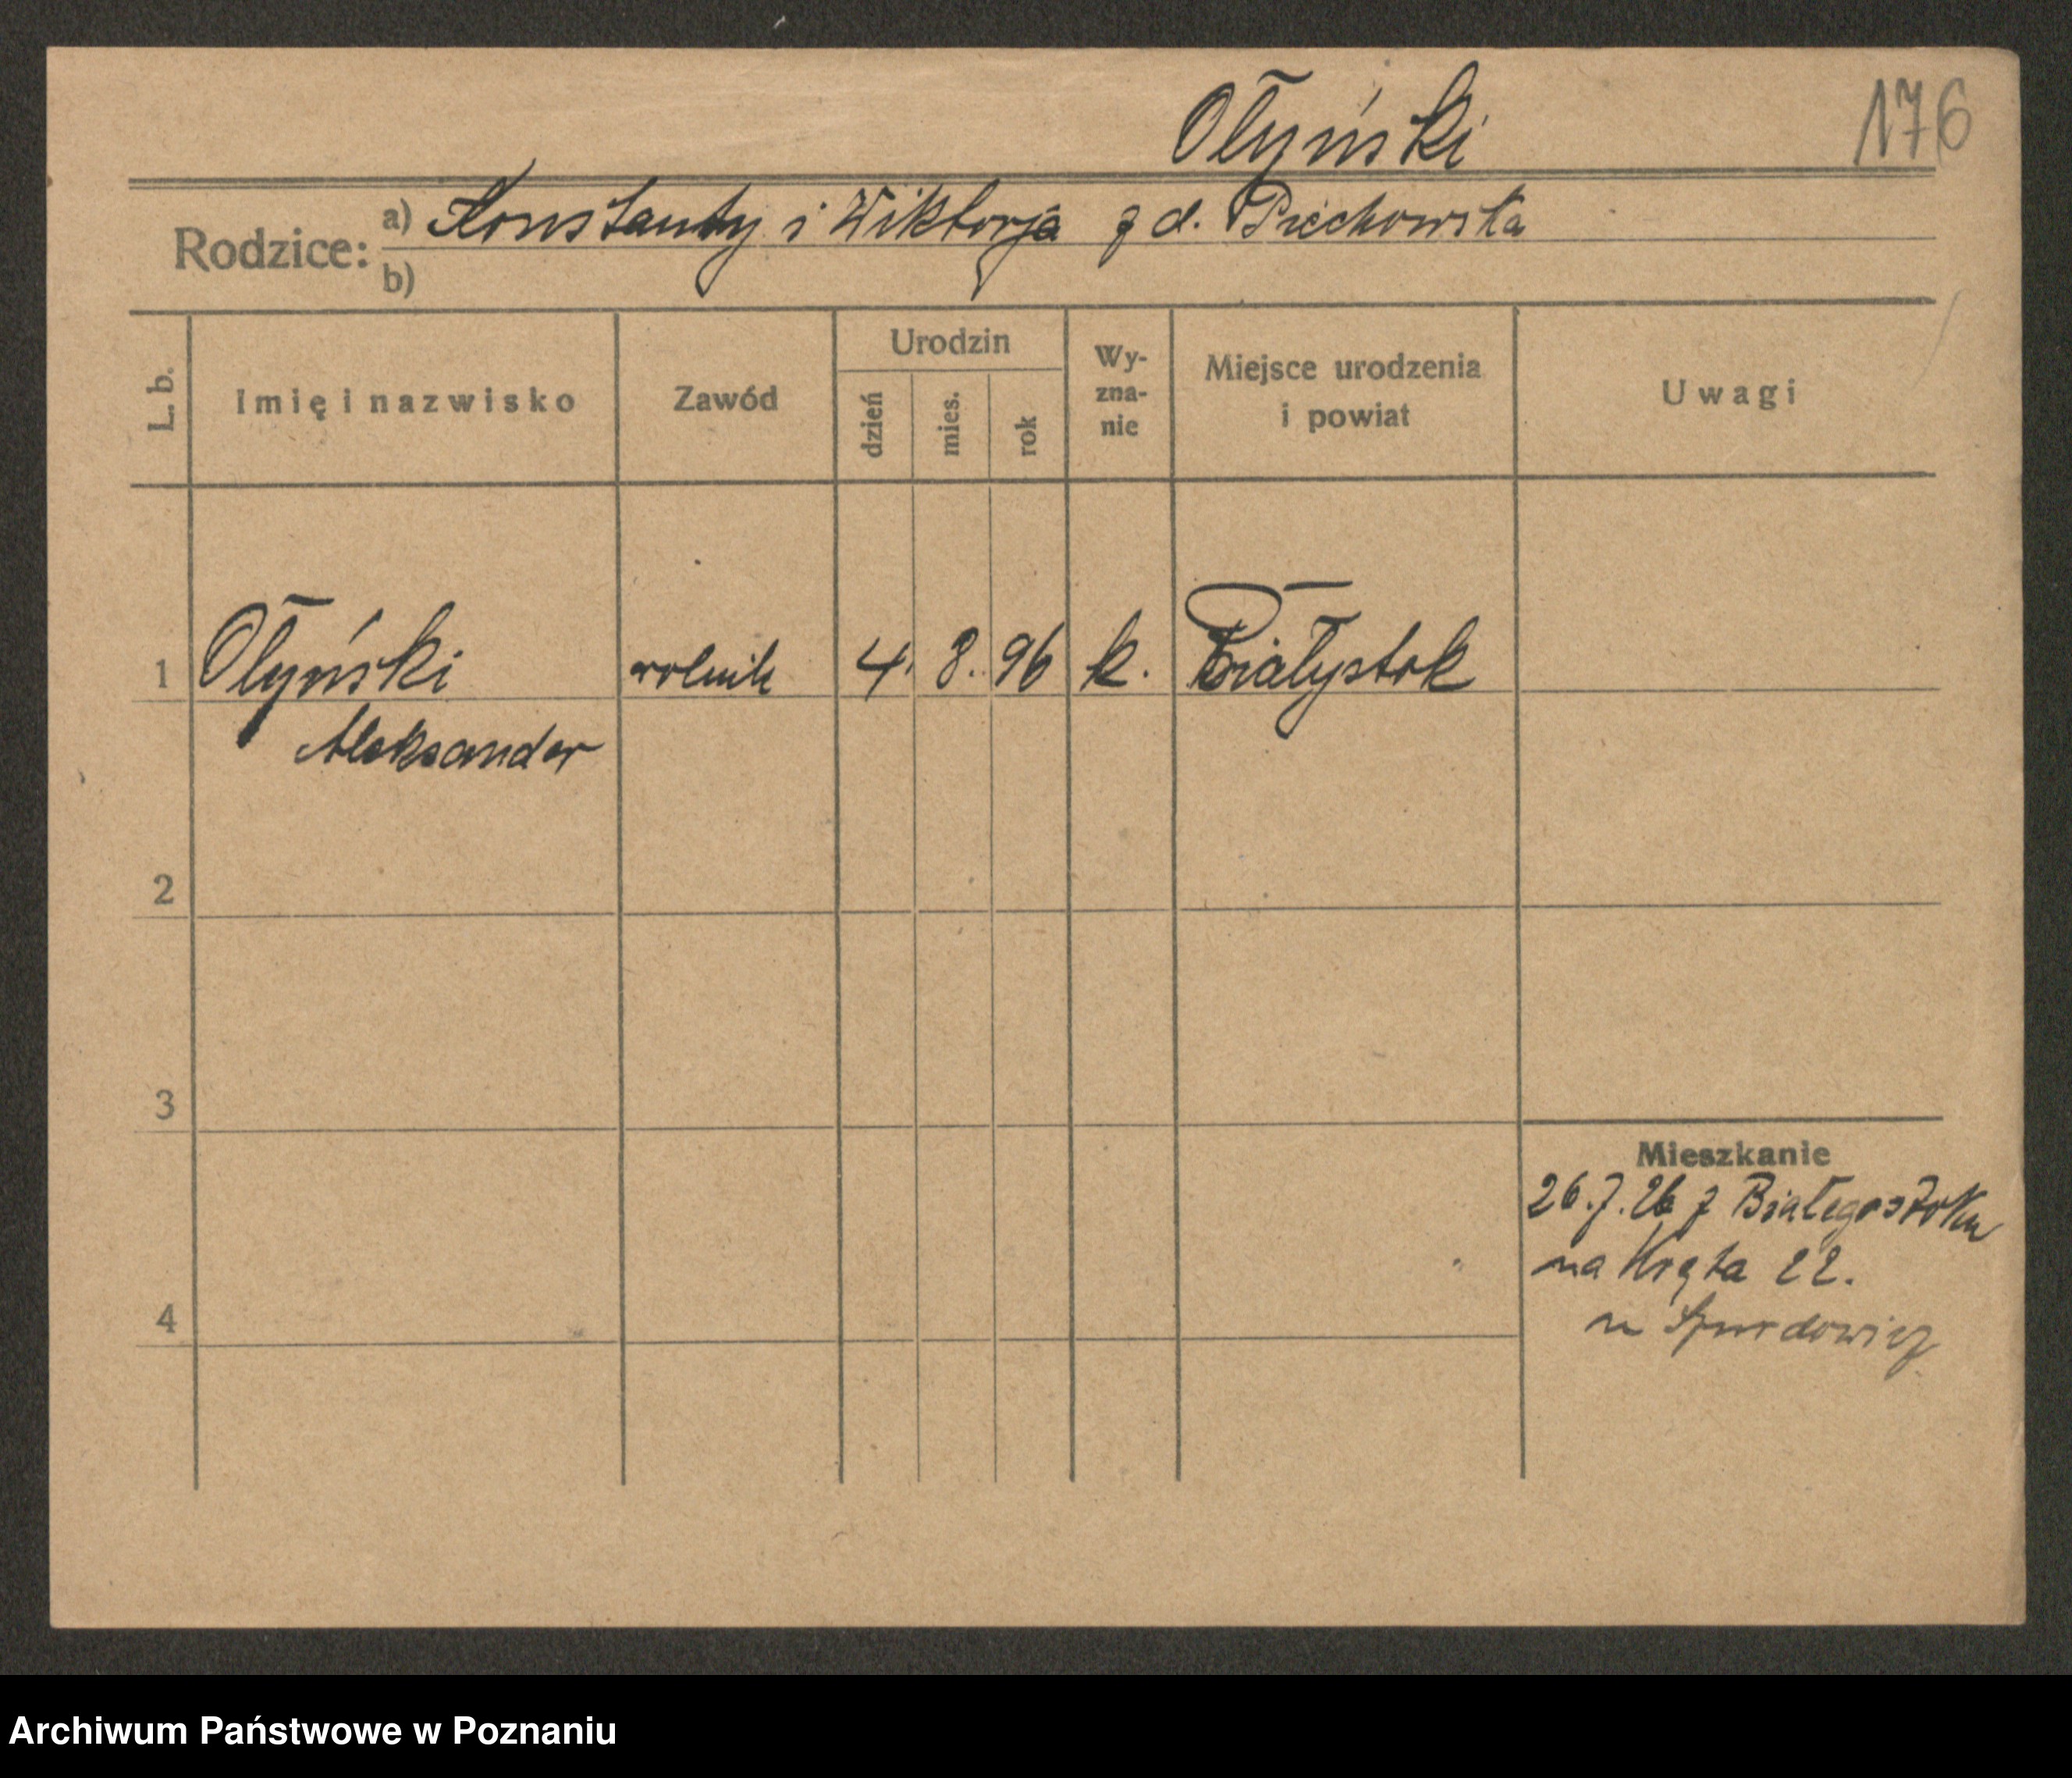 Ołyński
176
Rodzice: a) Konstanty i Wiktorja z d. Piechowska
b)
L. b.
Imię i nazwisko
Zawód
Urodzin
dzień
mies.
rok
Wy-
zna-
nie
Miejsce urodzenia
i powiat
Uwagi
1 Ołyński rolnik 4. 8. 96 k. Białystok
Aleksander
2
3
4
Mieszkanie
26.7.26 z Białegostoku
na Kręta 22.
u
Archiwum Państwowe w Poznaniu